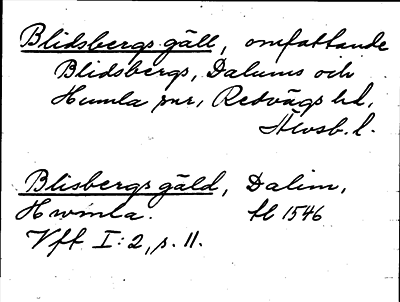 Blidsbergs gäll, omfattande
Blidsbergs, Dalums och
Humla snr, Redvägs hd,
Älvsb. l.
Blisbergs gäld, Dalim,
Hwmla. tl 1546
Vft I:2, s. 11.